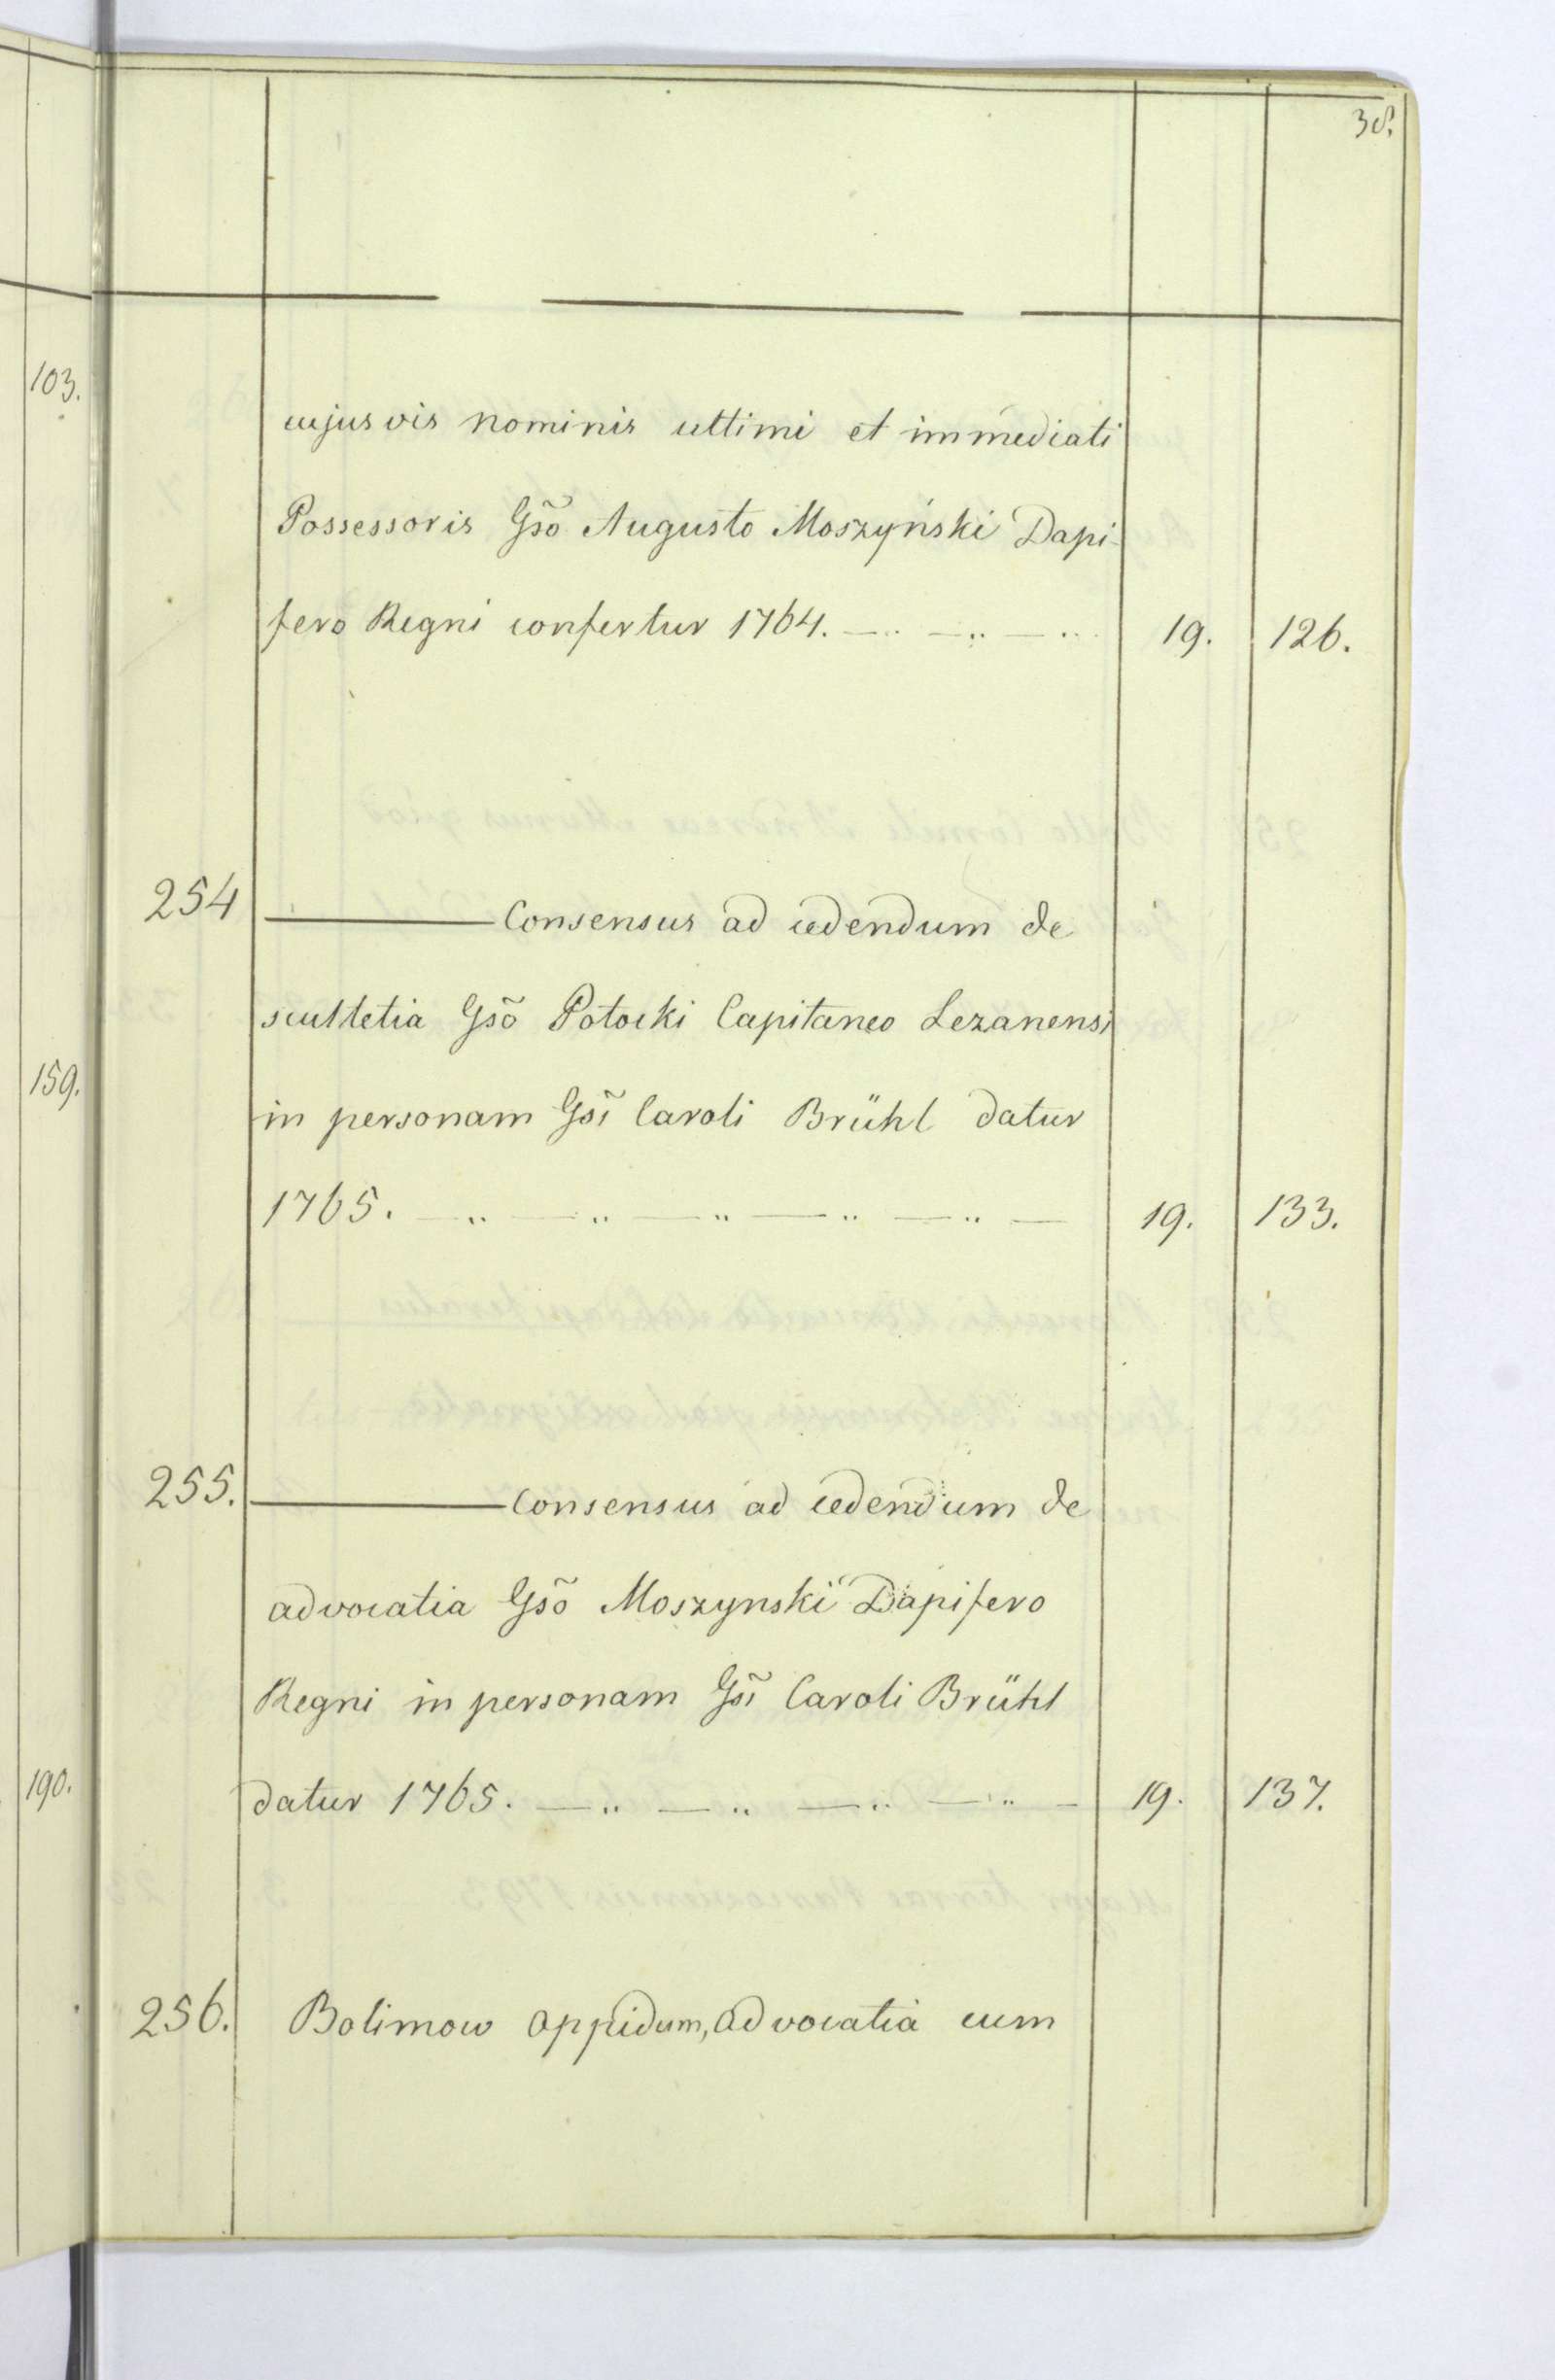 38.
103.
cujusvis nominis ultimi et immediati
Possessoris Gsõ Augusto Moszyński Dapi-
fero Regni confertur 1764. —..—..—.. 19. 126.
254 ——— Consensus ad cedendum de
scultetia Gsõ Potocki Capitaneo Lezanensi
159.
in personam Gsĩ Caroli Brühl datur
1765. —..—..—..—..—..— 19. 133.
255. ——— Consensus ad cedendum de
advocatia Gsõ Moszynski Dapifero
Regni in personam Gsĩ Caroli Brühl
190.
datur 1765. —..—..—..—..— 19. 137.
256. Bolimow oppidum, advocatia cum